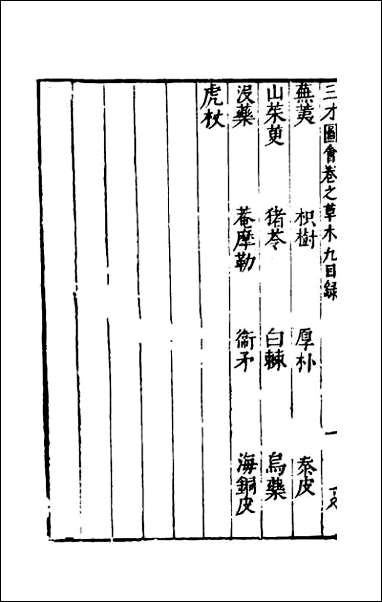 三才圖會卷之草木九目錄 一
蕪荑 枳樹 厚朴 秦皮
山茱萸 猪苓 白棘 烏藥
沒藥 菴摩勒 衛矛 海銅皮
虎杖